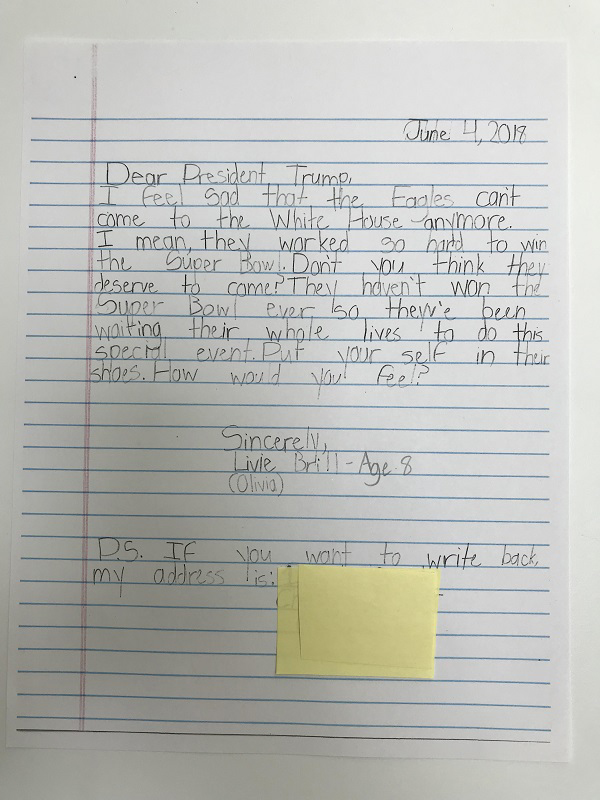 June 4, 2018
Dear President Trump,
I feel sad that the Eagles can't
come to the White House anymore.
I mean, they worked so hard to win
the Super Bowl. Don't you think they
deserve to come? They haven't won the
Super Bowl ever, so they'e been
waiting their whole lives to do this
special event. Put your self in their
shoes. How would you feel?
Sincerely,
Livie Brill - Age 8
(Olivia)
P.S. If you want to write back,
my address is: